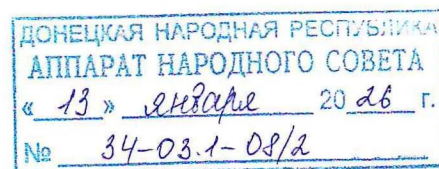 ДОНЕЦКАЯ НАРОДНАЯ РЕСПУБЛИКА
АППАРАТ НАРОДНОГО СОВЕТА
« 13 » января 20 26 г.
№ 34-03.1-08/2